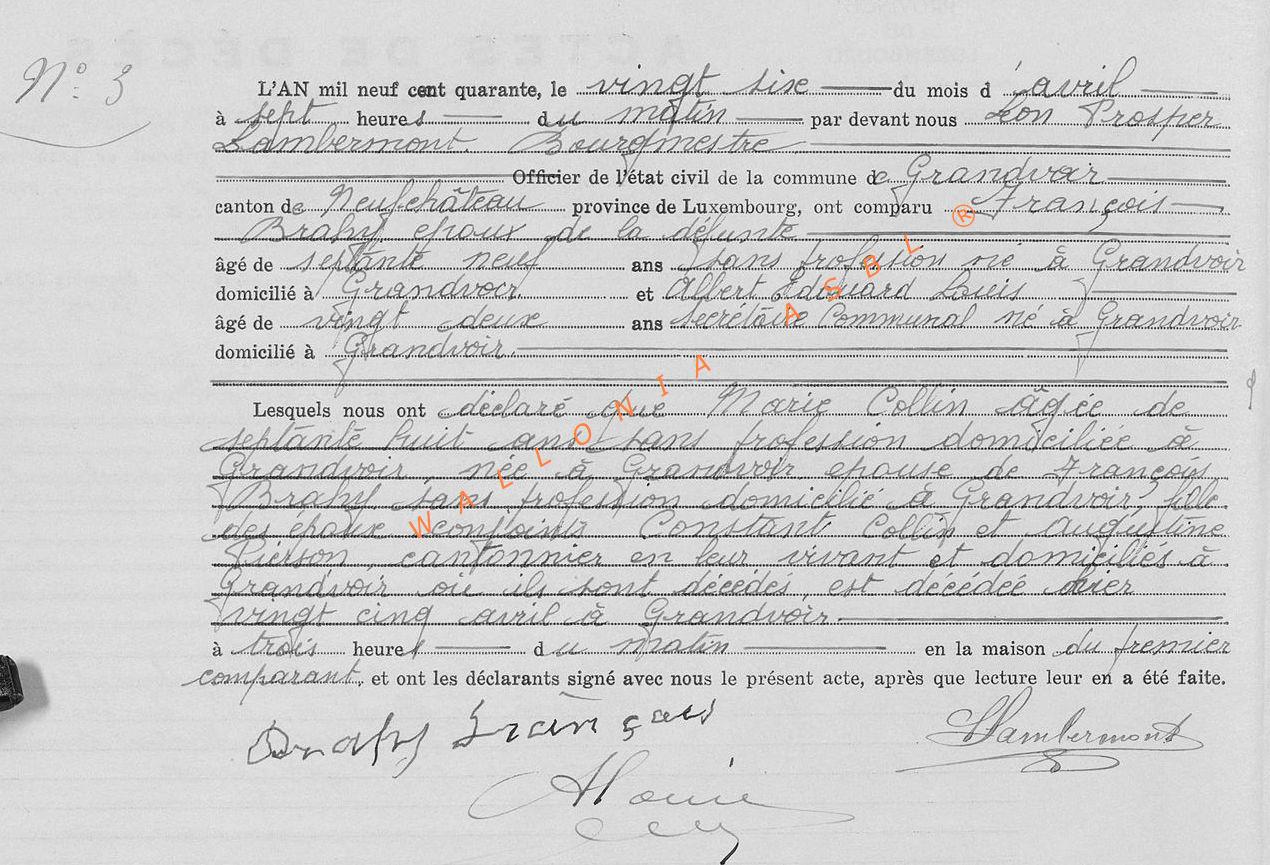 N° 3
L'AN mil neuf cent quarante, le vingt six du mois d'avril
à sept heures du matin par devant nous Léon Prosper
Lambermont. Bourgmestre,
Officier de l'état civil de la commune de Grandvoir
canton de Neufchâteau province de Luxembourg, ont comparu François
Brahy epoux de la défunte
âgé de septante neuf ans sans profession né à Grandvoir
domicilié à Grandvoir et Albert Edouard Louis
âgé de vingt deux ans Secrétaire Communal né à Grandvoir
domicilié à Grandvoir.
Lesquels nous ont déclaré que Marie Collin âgée de
septante huit ans sans profession domiciliée à
Grandvoir née à Grandvoir epouse de François
Brahy sans profession domicilié à Grandvoir, fille
des époux conjoints Constant Collin et Augustine
Pierson, cantonnier en leur vivant et domiciliés à
Grandvoir où ils sont décédés, est décédée hier
vingt cinq avril à Grandvoir.
à trois heures du matin en la maison du premier
comparant, et ont les déclarants signé avec nous le présent acte, après que lecture leur en a été faite.
Brahy François
Lambermont
WALLONIA ASBL ®